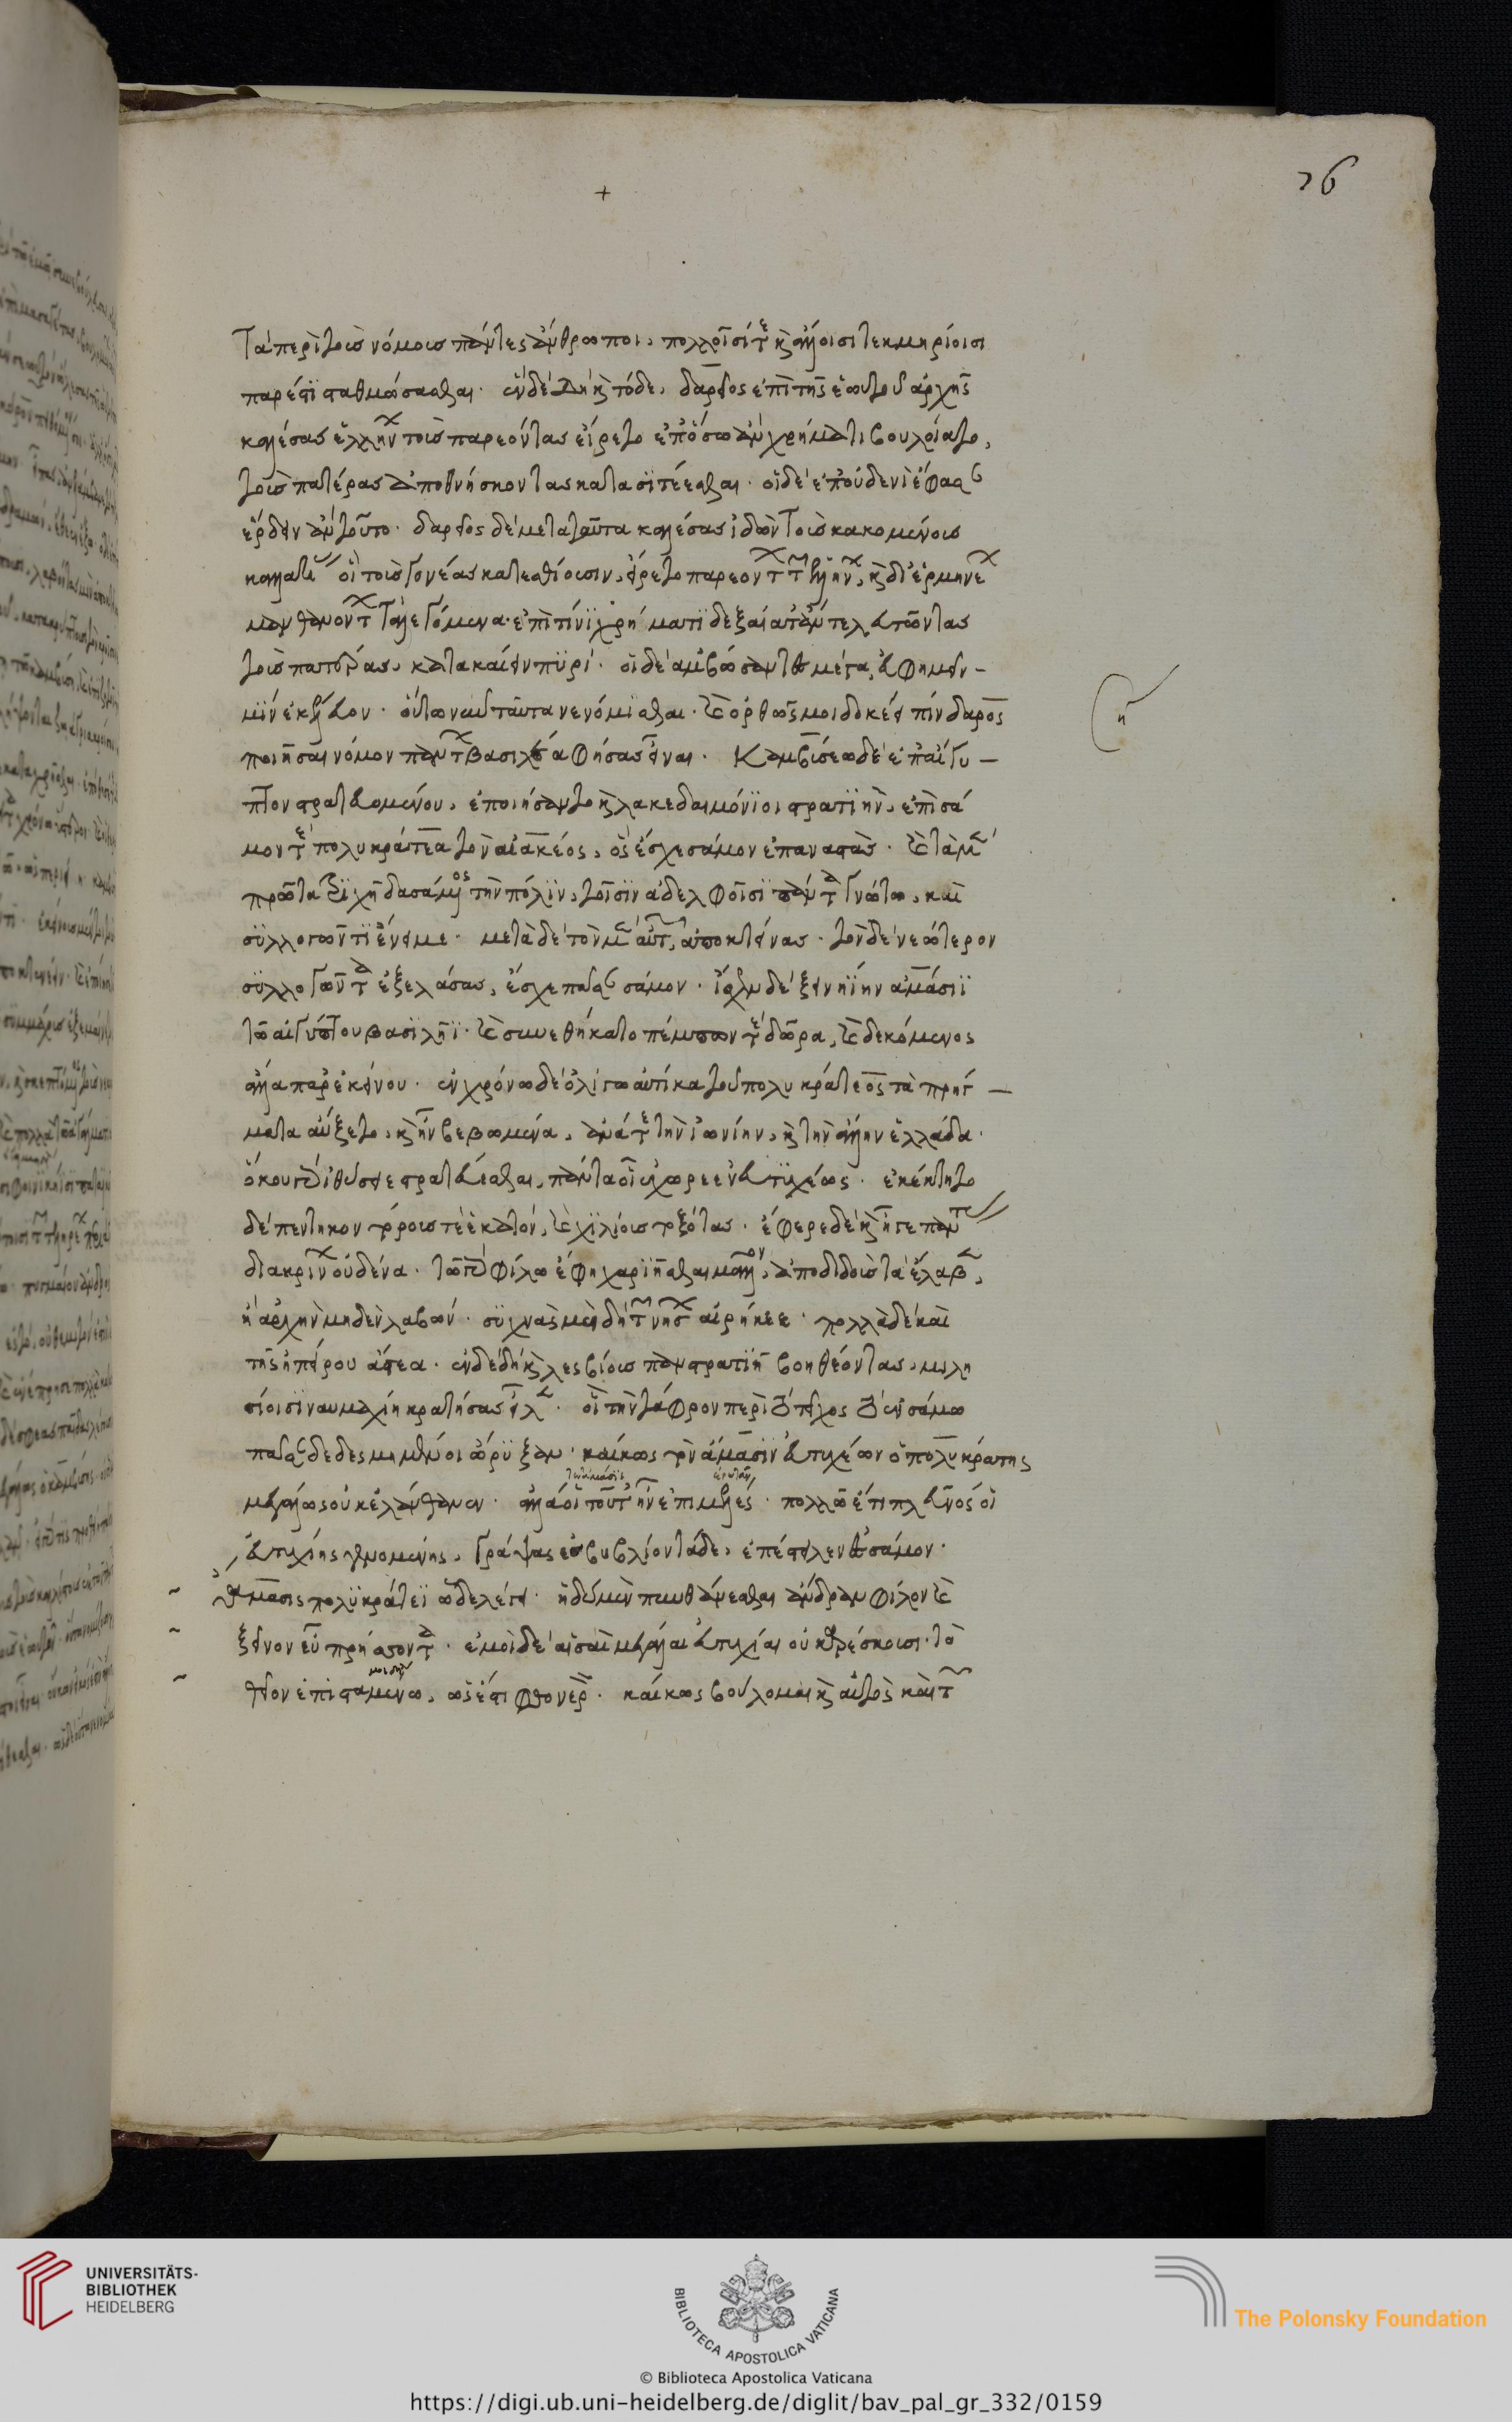 76
+
Τὰ περὶ τοὺς νόμους πάντες ἄνθρωποι, πολλοῖσί τε καὶ ἄλλοισι τεκμηρίοισι
πάρεστι σταθμώσασθαι· ἐν δὲ δὴ καὶ τόδε, δαρεῖος ἐπὶ τῆς ἑωυτοῦ ἀρχῆς
καλέσας ἑλλήνων τοὺς παρεόντας εἴρετο ἐπ᾽ ὅσω ἂν χρήματι βουλοίατο,
τοὺς πατέρας ἀποθνήσκοντας κατασιτέεσθαι· οἱ δὲ ἐπ᾽ οὐδενὶ ἔφασαν
ἔρδειν ἂν τοῦτο· δαρεῖος δὲ μετὰ ταῦτα καλέσας ἰδῶν τοὺς κακομένους
καλατίας οἳ τοὺς γονέας κατεσθίουσιν, εἴρετο παρεόντων τῶν ἑλλήνων, καὶ δι᾽ ἑρμηνέων
μανθανόντων τὰ λεγόμενα· ἐπὶ τίνι χρήματι δεξαίατ᾽ ἂν τελευτῶντας
τοὺς πατέρας, κατακαίειν πυρί· οἱ δὲ ἀμβώσαντες μέγα, εὐφημεῖν
μιν ἐκέλευον· οὕτω νῦν ταῦτα νενόμισται· καὶ ὀρθῶς μοι δοκέει πίνδαρος
ποιῆσαι νόμον πάντων βασιλέα φήσας εἶναι· Καμβύσεω δὲ ἐπ᾽ αἴγυ
πτον στρατευομένου, ἐποιήσαντο καὶ λακεδαιμόνιοι στρατιὴν, ἐπὶ σά
μον τε πολυκράτεα τὸν αἰάκεος, ὃς ἔσχε σάμον ἐπαναστὰς· καὶ τὰ μὲν
πρῶτα τριχῆ δασάμενος τὴν πόλιν, τοῖσιν ἀδελφοῖσι πανταγνώτω, καὶ
συλλοσῶντι ἔνειμε· μετὰ δὲ τὸν μὲν αὐτῶν ἀποκτείνας· τὸν δὲ νεώτερον
συλλογῶντα ἐξελάσας, ἔσχε πᾶσαν σάμον· ἴσχων δὲ ξεινηίην ἀμάσιι
τῶ αἰγύπτου βασιλῆι· καὶ συνεθήκατο πέμπων τε δῶρα, καὶ δεκόμενος
ἄλλα παρ᾽ ἐκείνου· ἐν χρόνω δὲ ὀλίγω αὐτίκα τοῦ πολυκράτεος τὰ πρήγ
ματα αὔξετο, καὶ ἦν βεβωμένα, ἀνά τε τὴν ἰωνίην, καὶ τὴν ἄλλην ἑλλάδα·
ὅκου γὰρ ἰθύσειε στρατεύεσθαι, πάντα οἱ ἐχώρεε εὐτυχέως· ἐκέκτητο
δὲ πεντηκοντόρους τε ἑκατόν, καὶ χιλίους τοξότας· ἔφερε δὲ καὶ ἦγε πάντας
διακρίνων οὐδένα· τῶ γὰρ φίλω ἔφη χαριεῖσθαι μᾶλλον, ἀποδιδοὺς τὰ ἔλαβεν,
ἢ ἀρχὴν μηδὲν λαβών· συχνὰς μὲν δὴ τῶν νήσων αἱρήκεε· πολλὰ δὲ καὶ
τῆς ἠπείρου ἄστεα· ἐν δὲ δὴ καὶ λεσβίους πανστρατιῆ βοηθέοντας, μιλη
σίοισι ναυμαχίη κρατήσας εἷλεν· οἳ τὴν τάφρον περὶ τὸ τεῖχος τὸ ἐν σάμω
πᾶσαν δεδεμένοι ὤρυξαν· καί κως τὸν ἄμασιν εὐτυχέων ὁ πολυκράτης
μεγάλως οὐκ ἐλάνθανεν· ἀλλά οἱ τοῦτ᾽ ἦν ἐπιμελές· πολλῶ ἔτι πλεῦνός οἱ
εὐτυχίης γινομένης, γράψας ἐς βυβλίον τάδε, ἐπέστειλεν ἐς σάμον·
Ἄμασις πολυκράτεϊ ὧδε λέγει· ἡδὺ μὲν πυνθάνεσθαι ἄνδρα φίλον καὶ
ξεῖνον εὖ πρήσσοντα· ἐμοὶ δὲ αἱ σαὶ μεγάλαι εὐτυχίαι οὐκ ἀρέσκουσι· τὸ
θεῖον ἐπισταμένω, ὡς ἔστι φθονερόν· καί κως βούλομαι καὶ αὐτὸς καὶ τῶν
UNIVERSITÄTS-
BIBLIOTHEK
HEIDELBERG
BIBLIOTECA APOSTOLICA VATICANA
The Polonsky Foundation
© Biblioteca Apostolica Vaticana
https://digi.ub.uni-heidelberg.de/diglit/bav_pal_gr_332/0159